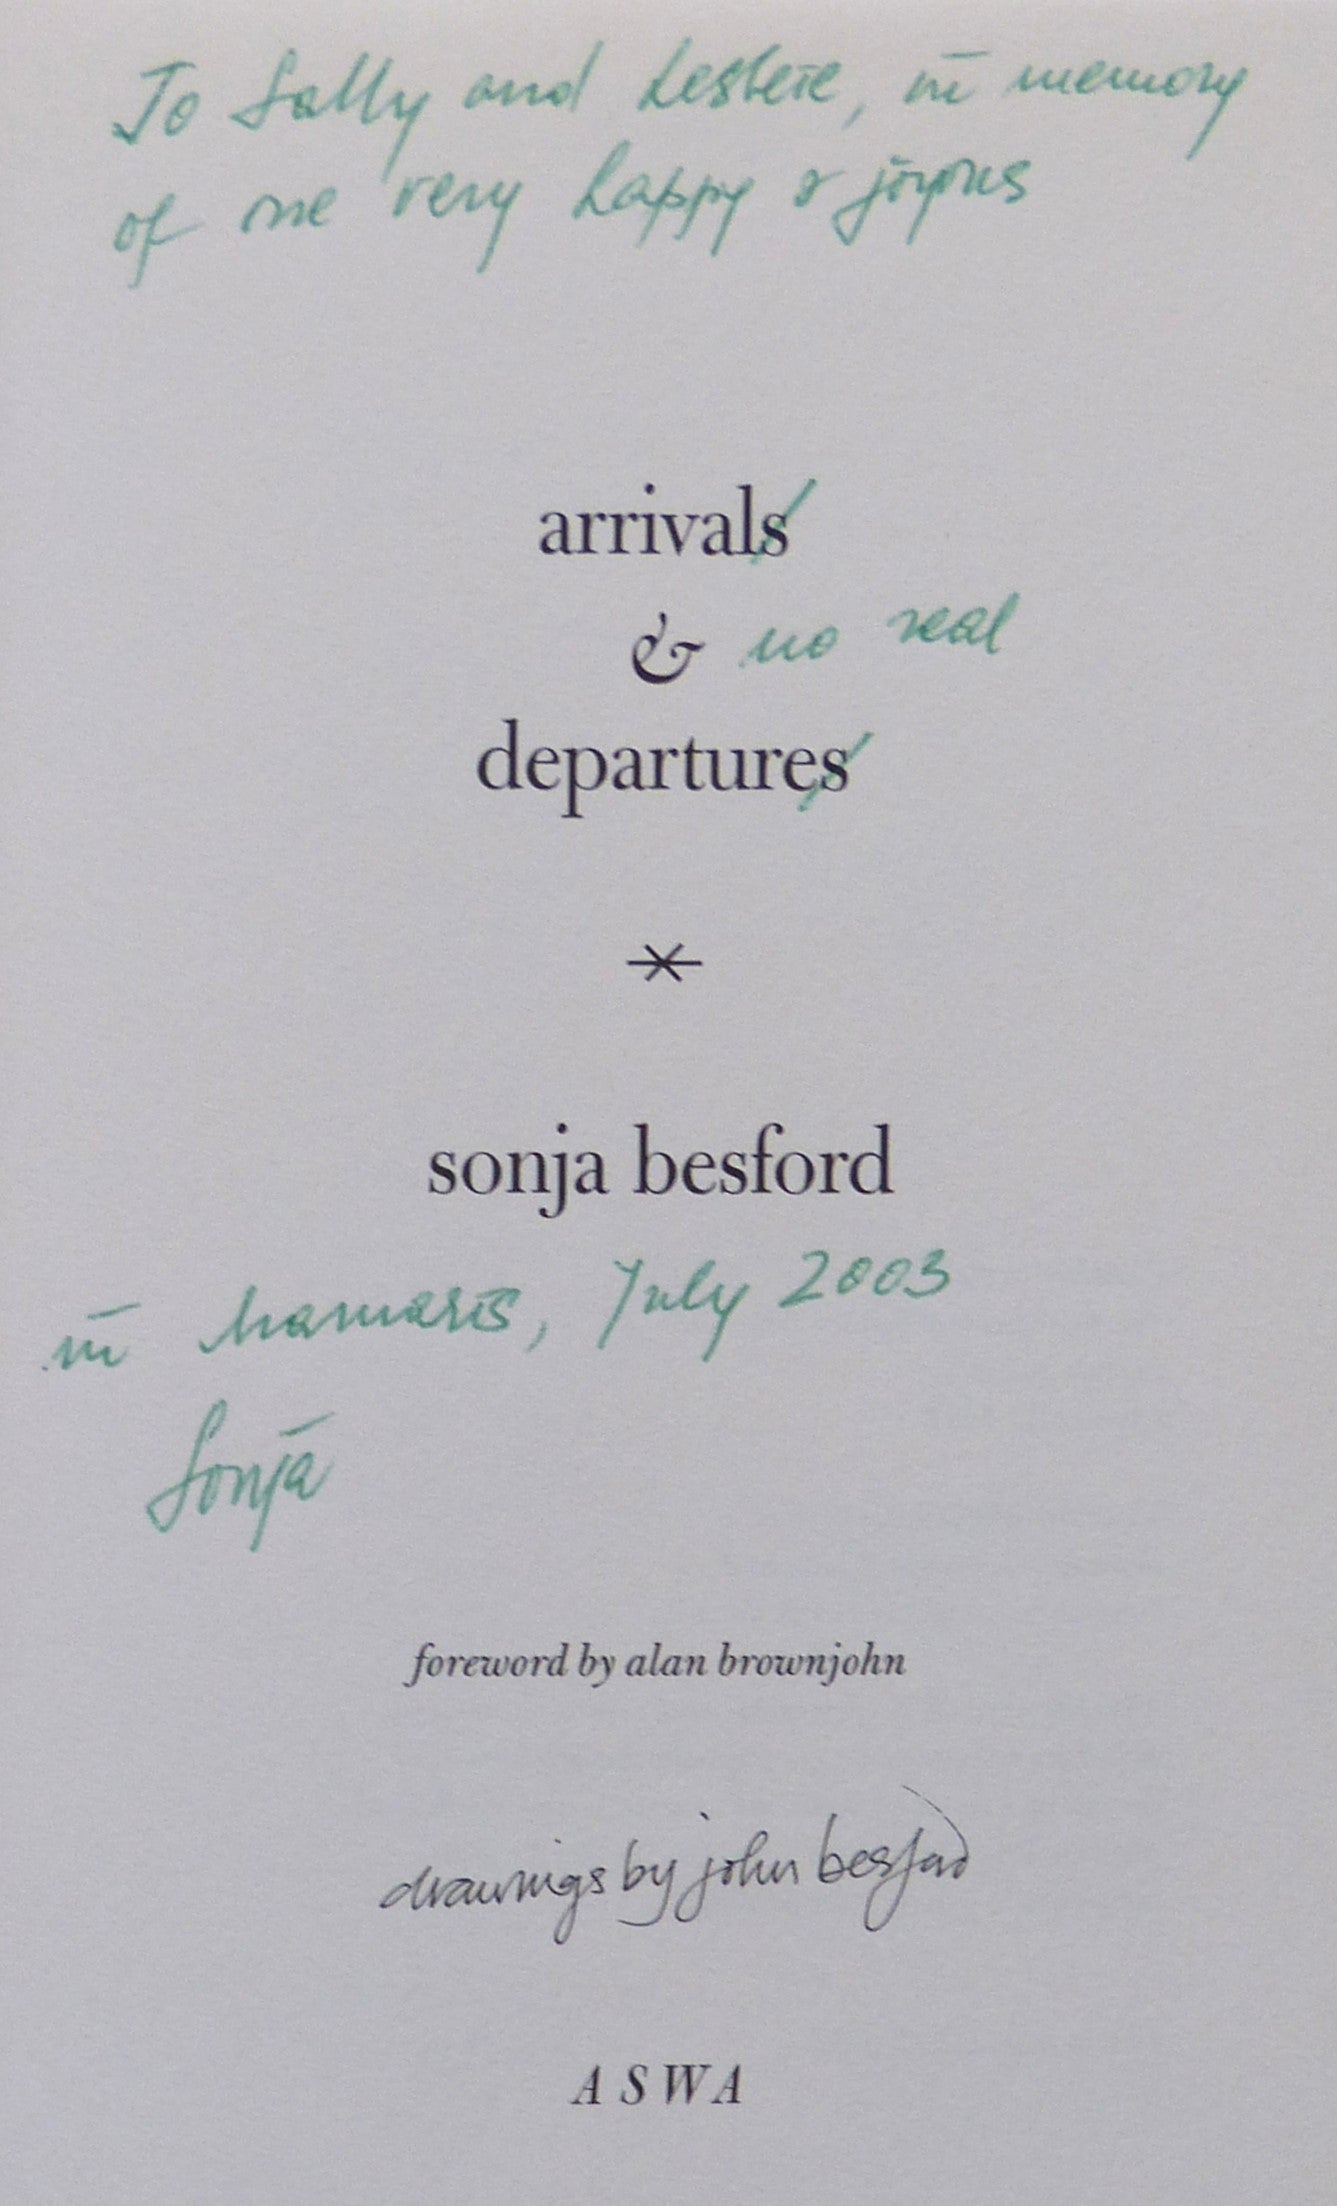 To Sally and Leslie, in memory
of one very happy & joyous
arrivals
& no real
departures
sonja besford
in Mamaris, July 2003
Sonja
foreword by alan brownjohn
drawings by john besford
ASWA